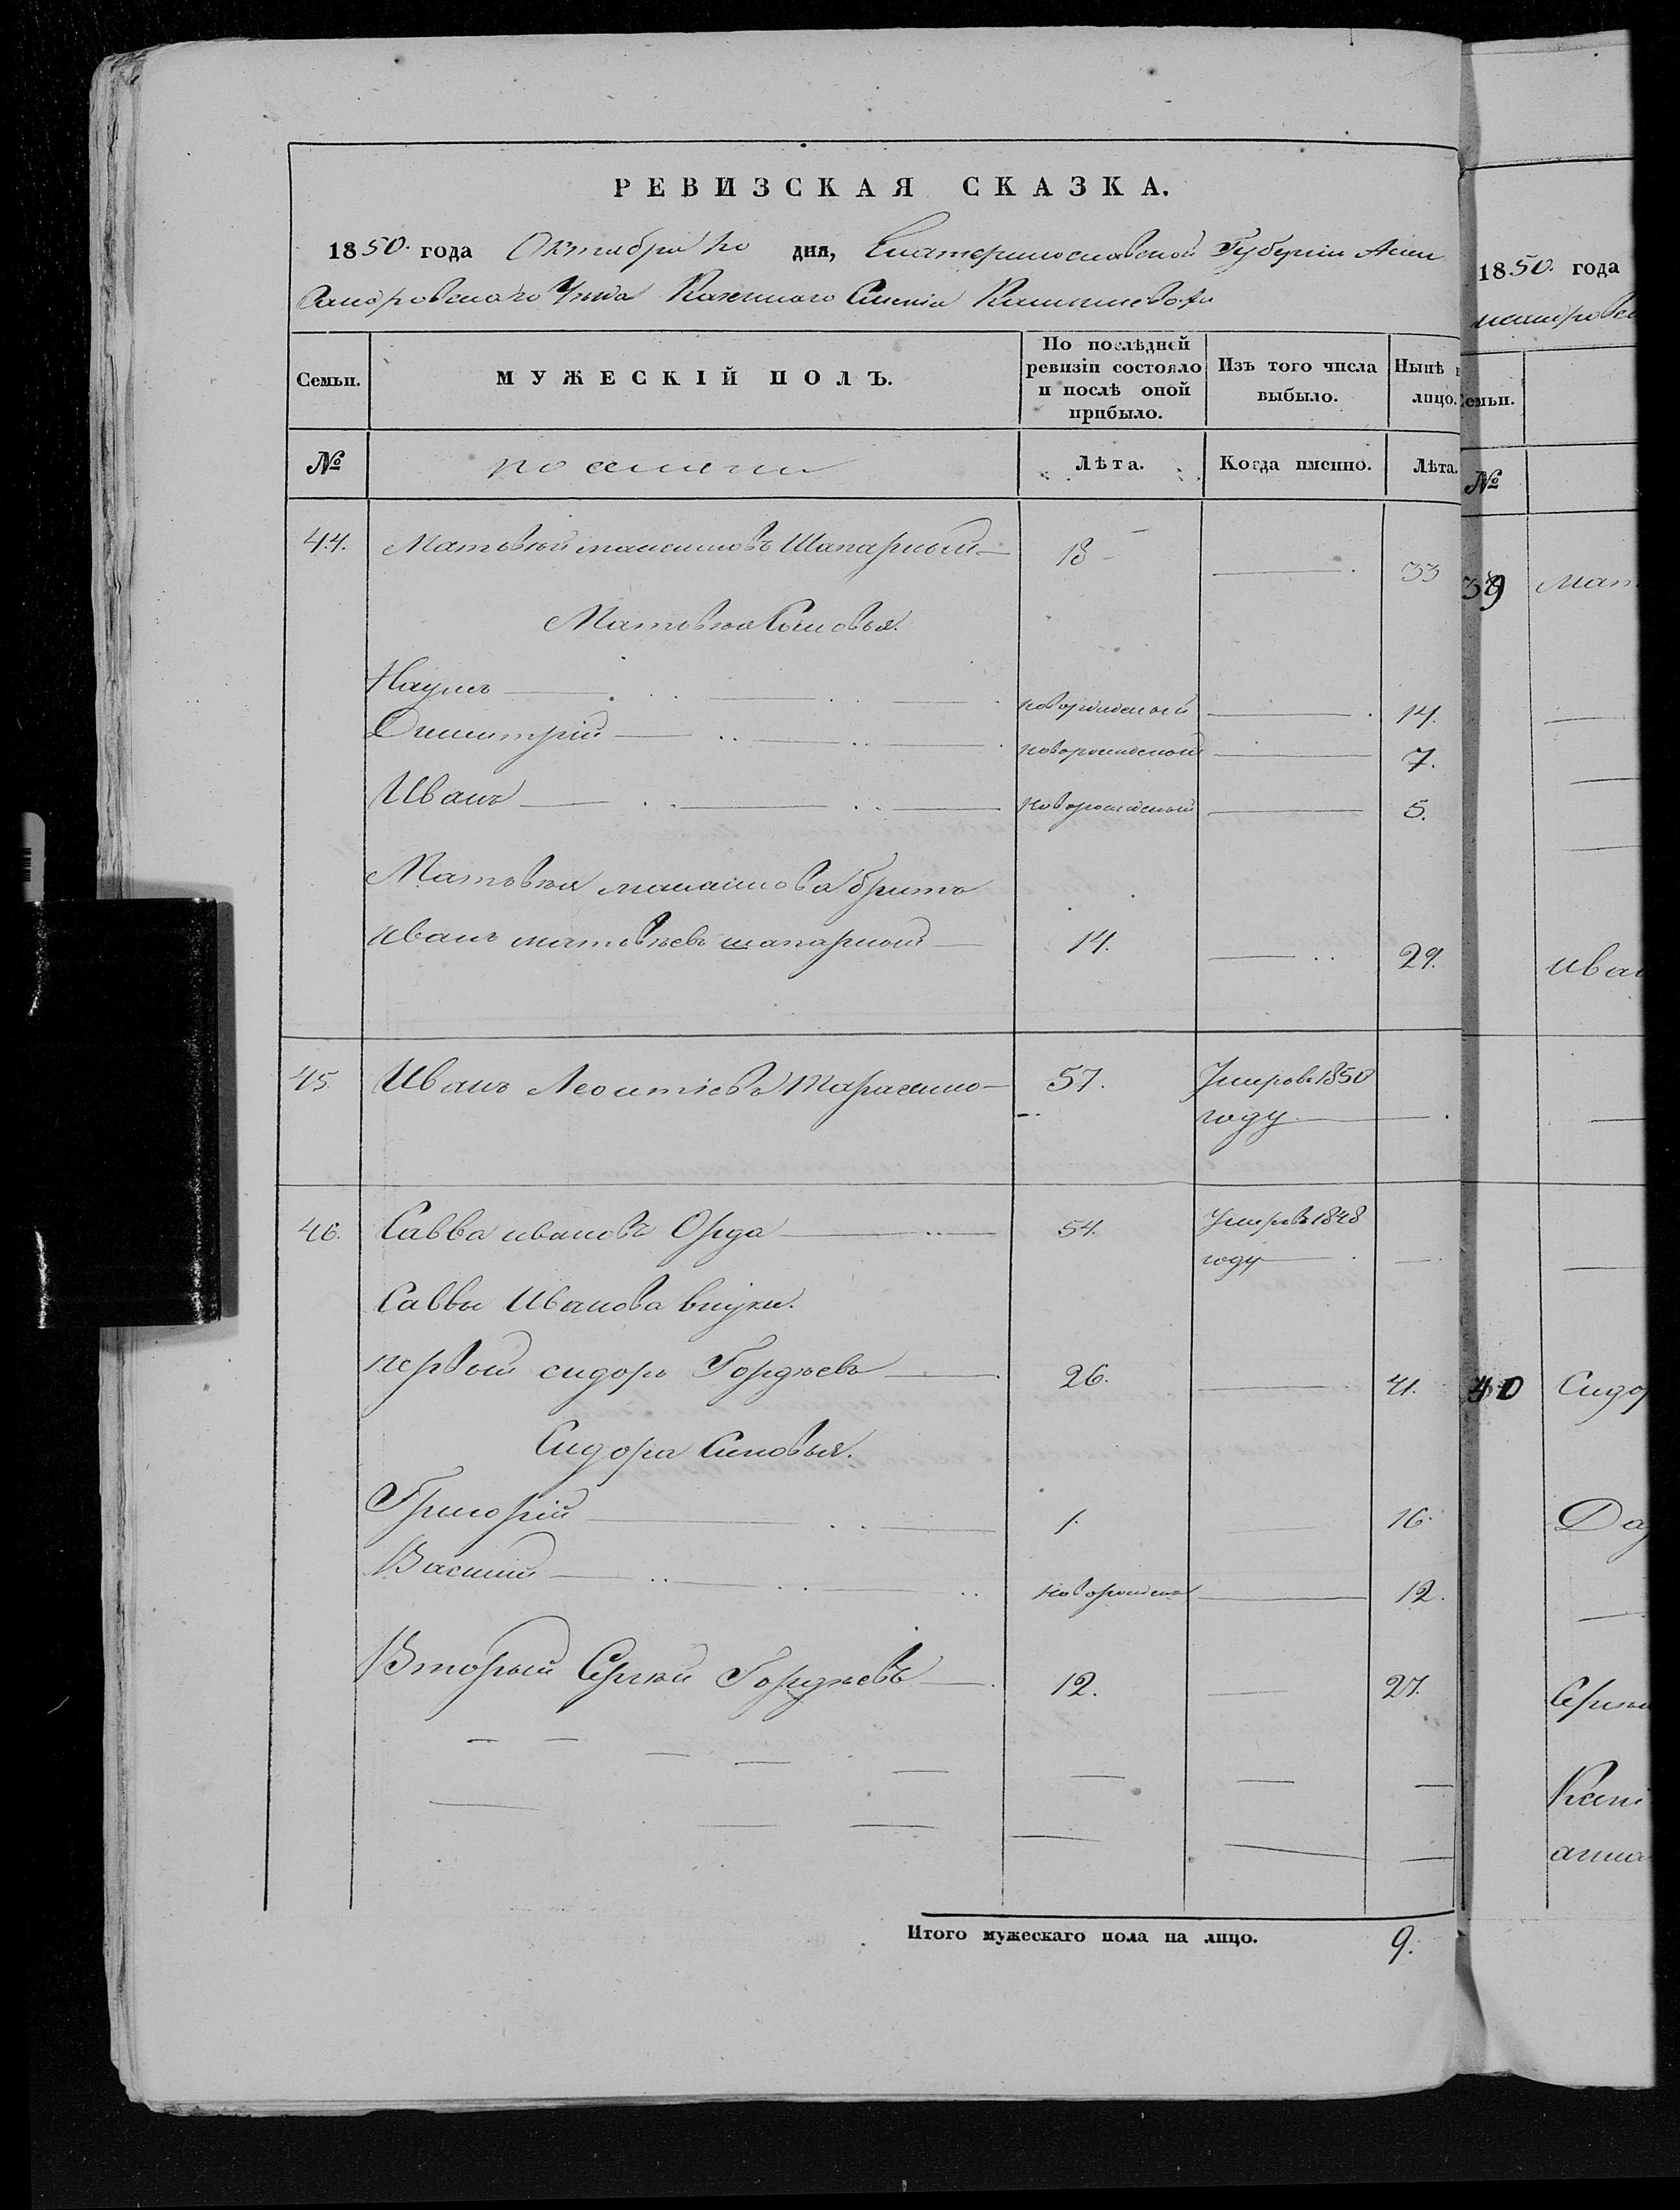 РЕВИЗСКАЯ СКАЗКА.
1850. года Октября дня, Екатеринославской Губерніи Алек
сандровскаго Уѣзда Казеннаго Селенія
Семьи. МУЖЕСКІЙ ПОЛЪ. По послѣдней ревизіи состояло и послѣ оной прибыло. Изъ того числа выбыло. Нынѣ лицо.
№ Лѣта. Когда именно. Лѣта.
44. Матвѣй Максимовъ Шапарный 18 33
Матвѣя Сыновья.
Наумъ новорожденый 14.
Димитрій новорожденой 7.
Иванъ новорожденый 5.
Матвѣя максимова братъ
иванъ матвѣевъ шапарный 14. 29.
45. Иванъ Леонтіевъ 57. Умеръ в 1850
году
46. Савва ивановъ Орда 54. Умеръ в 1848
году
Саввы Иванова внуки.
первый сидоръ Гордѣевъ 26. 41.
Сидора Сыновья.
Григорій 1. 16.
Василій новорожден 12.
Вторый Сергѣй Гордѣевъ 12. 27.
Итого мужескаго пола на лицо. 9.
1850. года
Семьи.
№
39 Мат
ива
40 Сидо
Да
Сергѣ
анна